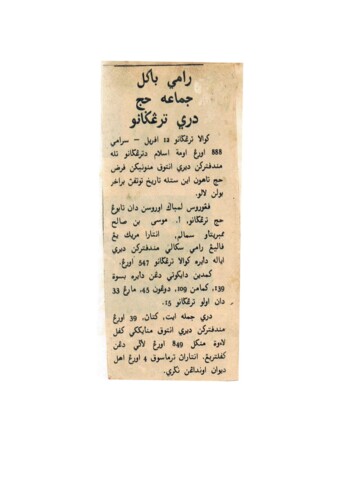 رامي باكل
جماعه حج
دري ترڠݢانو
كوالا ترڠݢانو 12 افريل — سرامي
888 اورڠ اومة اسلام دترڠݢانو تله
مندفتركن ديري انتوق منونيكن فرض
حج تاهون اين سبله تاريخ توتفن براخر
بولن لالو.
ڤڠوروس لمباݢ اوروسن دان تابوڠ
حج ترڠݢانو، أ. موسى بن صالح
ممبريتاو سمالم، انتارا مريك يڠ
ڤاليڠ رامي سكالي مندفتركن ديري
اياله دايره كوالا ترڠݢانو 547 اورڠ.
كمدين دايكوتي دڠن دايره بسوة
139، كمامن 109، دوڠون 45، مارڠ 33
دان اولو ترڠݢانو 15.
دري جمله ايت، كتان، 39 اورڠ
مندفتركن ديري انتوق منايككي كفل
لاوة منكل 849 اورڠ لاݢي دڠن
كفلتربڠ. انتاران ترماسوق 4 اورڠ اهل
ديوان اوندڠن نݢري.